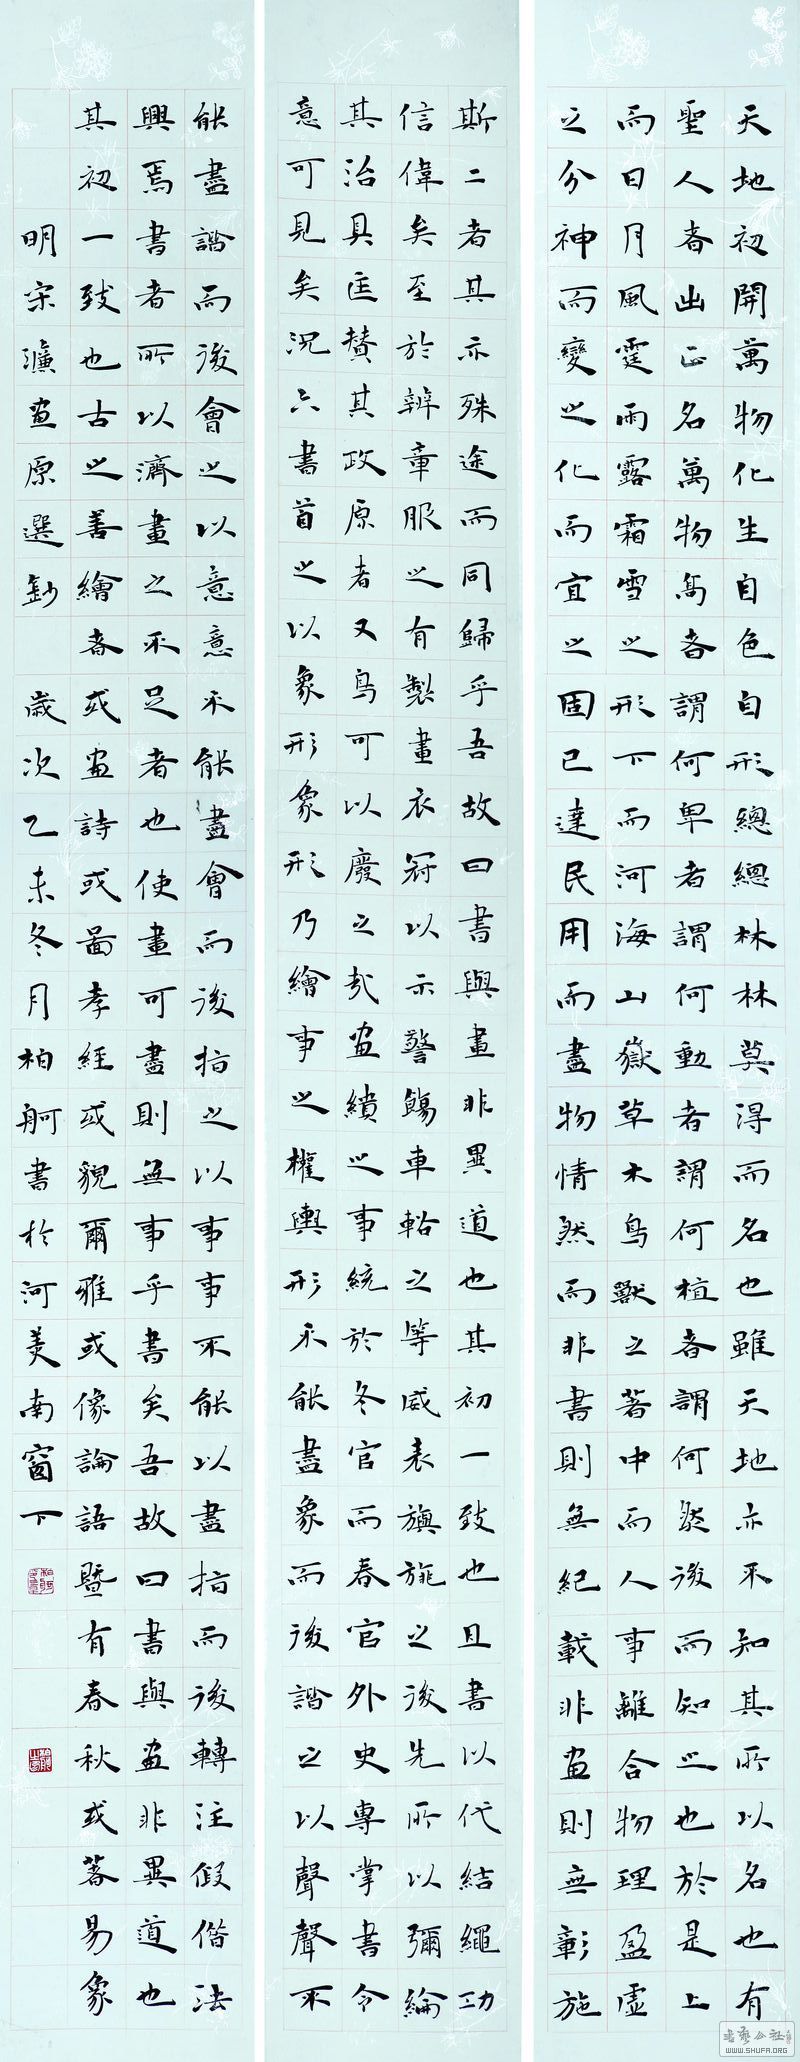 天地初開萬物化生自色自形總總林林莫得而名也雖天地亦不知其所以名也有
聖人者出正名萬物高者謂何卑者謂何動者謂何植者謂何然後而知之也於是上
而日月風霆雨露霜雪之形下而河海山嶽草木鳥獸之著中而人事離合物理盈虛
之分神而變之化而宜之固已達民用而盡物情然而非書則無紀載非畫則無彰施
斯二者其亦殊途而同歸乎吾故曰書與畫非異道也其初一致也且書以代結繩功
信偉矣至於辨章服之有製畫衣冠以示警飭車輅之等威表旟旐之後先所以彌綸
其治具匡贊其政原者又烏可以廢之哉畫繢之事統於冬官而春官外史專掌書令
意可見矣況六書首之以象形象形乃繪事之權輿形不能盡象而後諧之以聲聲不
能盡諧而後會之以意意不能盡會而後指之以事事不能以盡指而後轉注假借法
興焉書者所以濟畫之不足者也使畫可盡則無事乎書矣吾故曰書與畫非異道也
其初一致也古之善繪者或畫詩或圖孝經或貌爾雅或像論語暨有春秋或著易象
明宋濂畫原選鈔 歲次乙未冬月柏舸書於河美南窗下
書藝公社
WWW.SHUFA.ORG